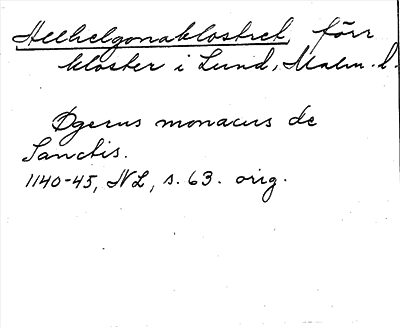 Helhelgonaklostret, förr
kloster i Lund, Malm. l.
Øgerus monacus de
Sanctis.
1140-45, NL, s. 63. orig.